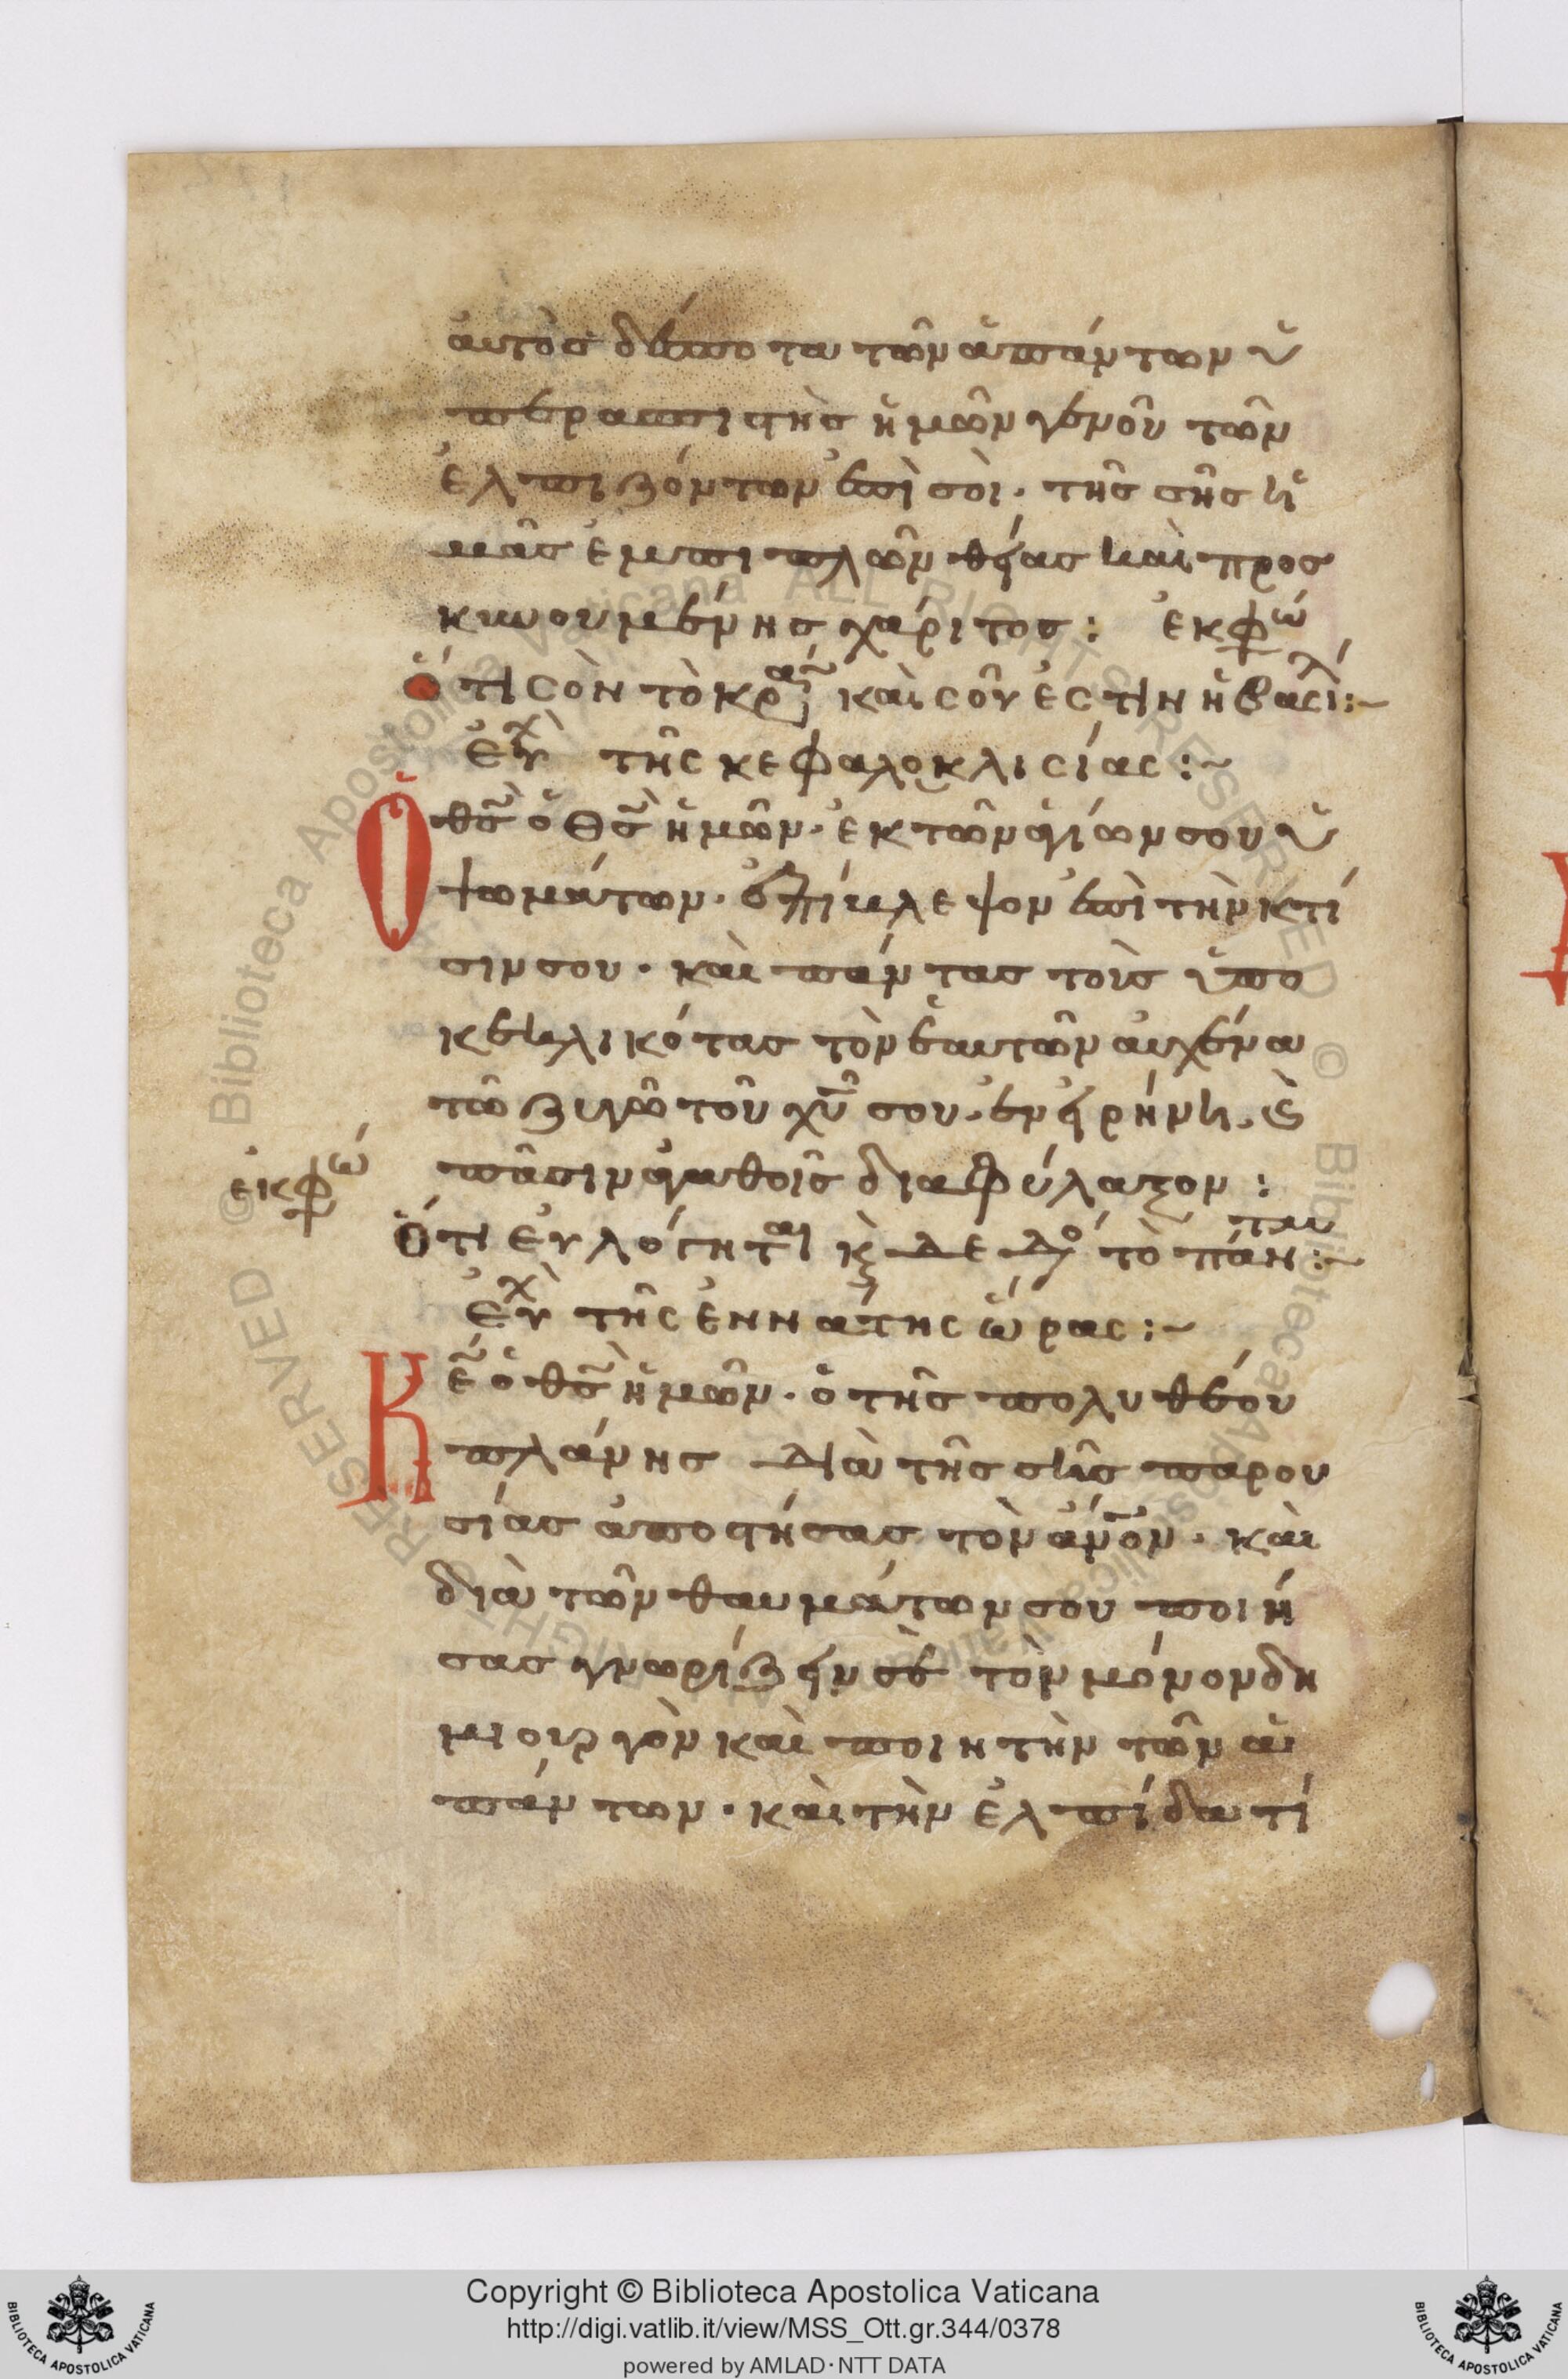 αὐτὸς δέσποτα τῶν ἁπάντων ὑ
περασπιστὴς ἡμῶν γενοῦ τῶν
ἐλπιζόντων ἐπὶ σοὶ· τῆς σῆς ἡ
μᾶς ἐμπιπλῶν θείας καὶ προσ
κυνουμένης χάριτος: ἐκφώ
ὅτι σὸν τὸ κρα καὶ σοῦ ἐστὶν ἡ βασιλ:~
Εὐχ τῆς κεφαλοκλισίας:~
Ὁ θς̃ ὁ θς̃ ἡμῶν· ἐκ τῶν ἁγίων σου ὑ
ψωμάτων· ἐπίβλεψον ἐπὶ τὴν κτί
σιν σου· καὶ πάντας τοὺς ὑπο
κεκλικότας τὸν ἑαυτῶν αὐχένα
τῶ ζυγῶ τοῦ χυ̃ σου· ἐν εἰρήνη· ϗ
ἐκφώ
πᾶσιν ἀγαθοῖς διαφύλαξον:
Ὅτι εὐλόγηται ϗ δεδό τὸ πάνταν:~
Εὐχ τῆς ἐννάτης ὥρας:~
Κε̃ ὁ θς̃ ἡμῶν· ὁ τῆς πολυθέου
πλάνης διὰ τῆς σῆς παρου
σίας ἀποστήσας τὸν ἄνο̃ν· καὶ
διὰ τῶν θαυμάτων σου ποιή
σας γνωρίζειν σὲ τὸν μόνον δη
μιουργὸν καὶ ποιητὴν τῶν ἁ
πάντων· καὶ τὴν ἐλπίδα τί
Copyright © Biblioteca Apostolica Vaticana
http://digi.vatlib.it/view/MSS_Ott.gr.344/0378
powered by AMLAD·NTT DATA
BIBLIOTECA APOSTOLICA VATICANA
BIBLIOTECA APOSTOLICA VATICANA